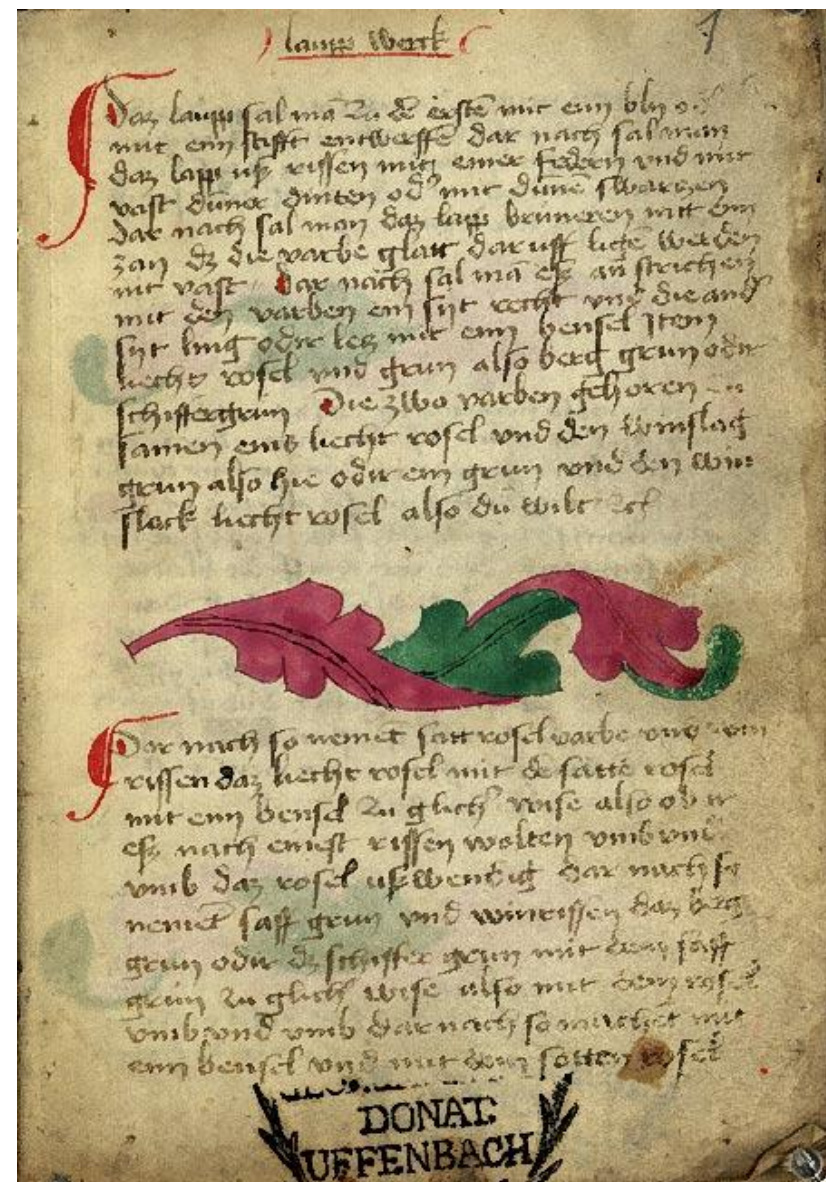 laupp werck
1
Daz laupp sal mā zu dē ersten mit eim bly od
mit eim stifft entwerffē dar nach sal man
daz lapp uß rissen mitt einer federn vnd mit
vast dūner dinten od' mit dūnē swarczen
dar nach sal man daz lapp bruneren mit eim
zan dz die varbe glatt dar uff ligē werden
nit vast Dar nach sal mā eß an strichen
mit den varben ein syt recht vnd die and'
syt ling odir lecz mit eim bensel Item
liecht rosel vnd grun also berg grun odir
schiffergrun Die zwo varben gehoren zu
samen eins liecht rosel vnd den winslag
grun also hie odir ein grun vnd den win
slack liecht rosel also du wilt
Dar nach so nemēt satt rosel varbe vnd
rissen daz liecht rosel mit dē sattē rosel
mit eim bensel zu glich' wise also ob ir
eß nach einest rissen wolten vmb vnd
vmb daz rosel ußwendig dar nach so
nemēt safft grun vnd winrissen daz berg
grun odir dz schiffer grun mit dem safft
grun zu glich' wise also mit dem rosel
vmb vnd vmb dar nach so machet mit
eim bensel vnd mit dem satten rosel
DONAT.
UFFENBACH